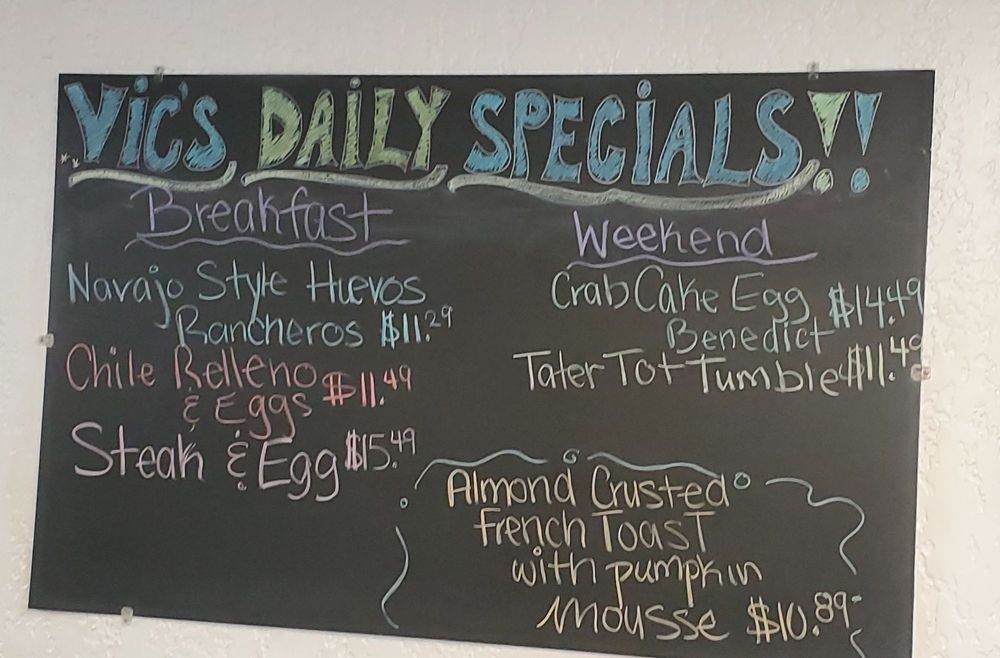 Vic's DAiLY SPECiALS!!
Breakfast
Navajo Style Huevos
Rancheros $11.29
Chile Relleno
& Eggs $11.49
Steak & Egg $15.49
Weekend
Crab Cake Egg $14.49
Benedict
Tater Tot Tumble $11.49
Almond Crusted
French Toast
with pumpkin
Mousse $10.89